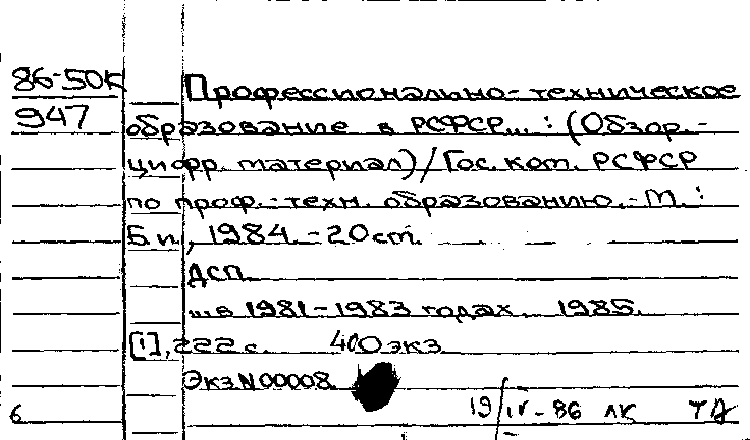 86-50К
947
Профессионально-техническое
образование в РСФСР...: (Обзор.-
цифр. материал)/Гос. ком. РСФСР
по проф.-техн. образованию.-М.:
Б.и., 1984.-20 см.
Дсп.
...в 1981-1983 годах. 1985.
[1], 222 с. 400 экз
Экз N 00008.
6 19/IV-86 лк